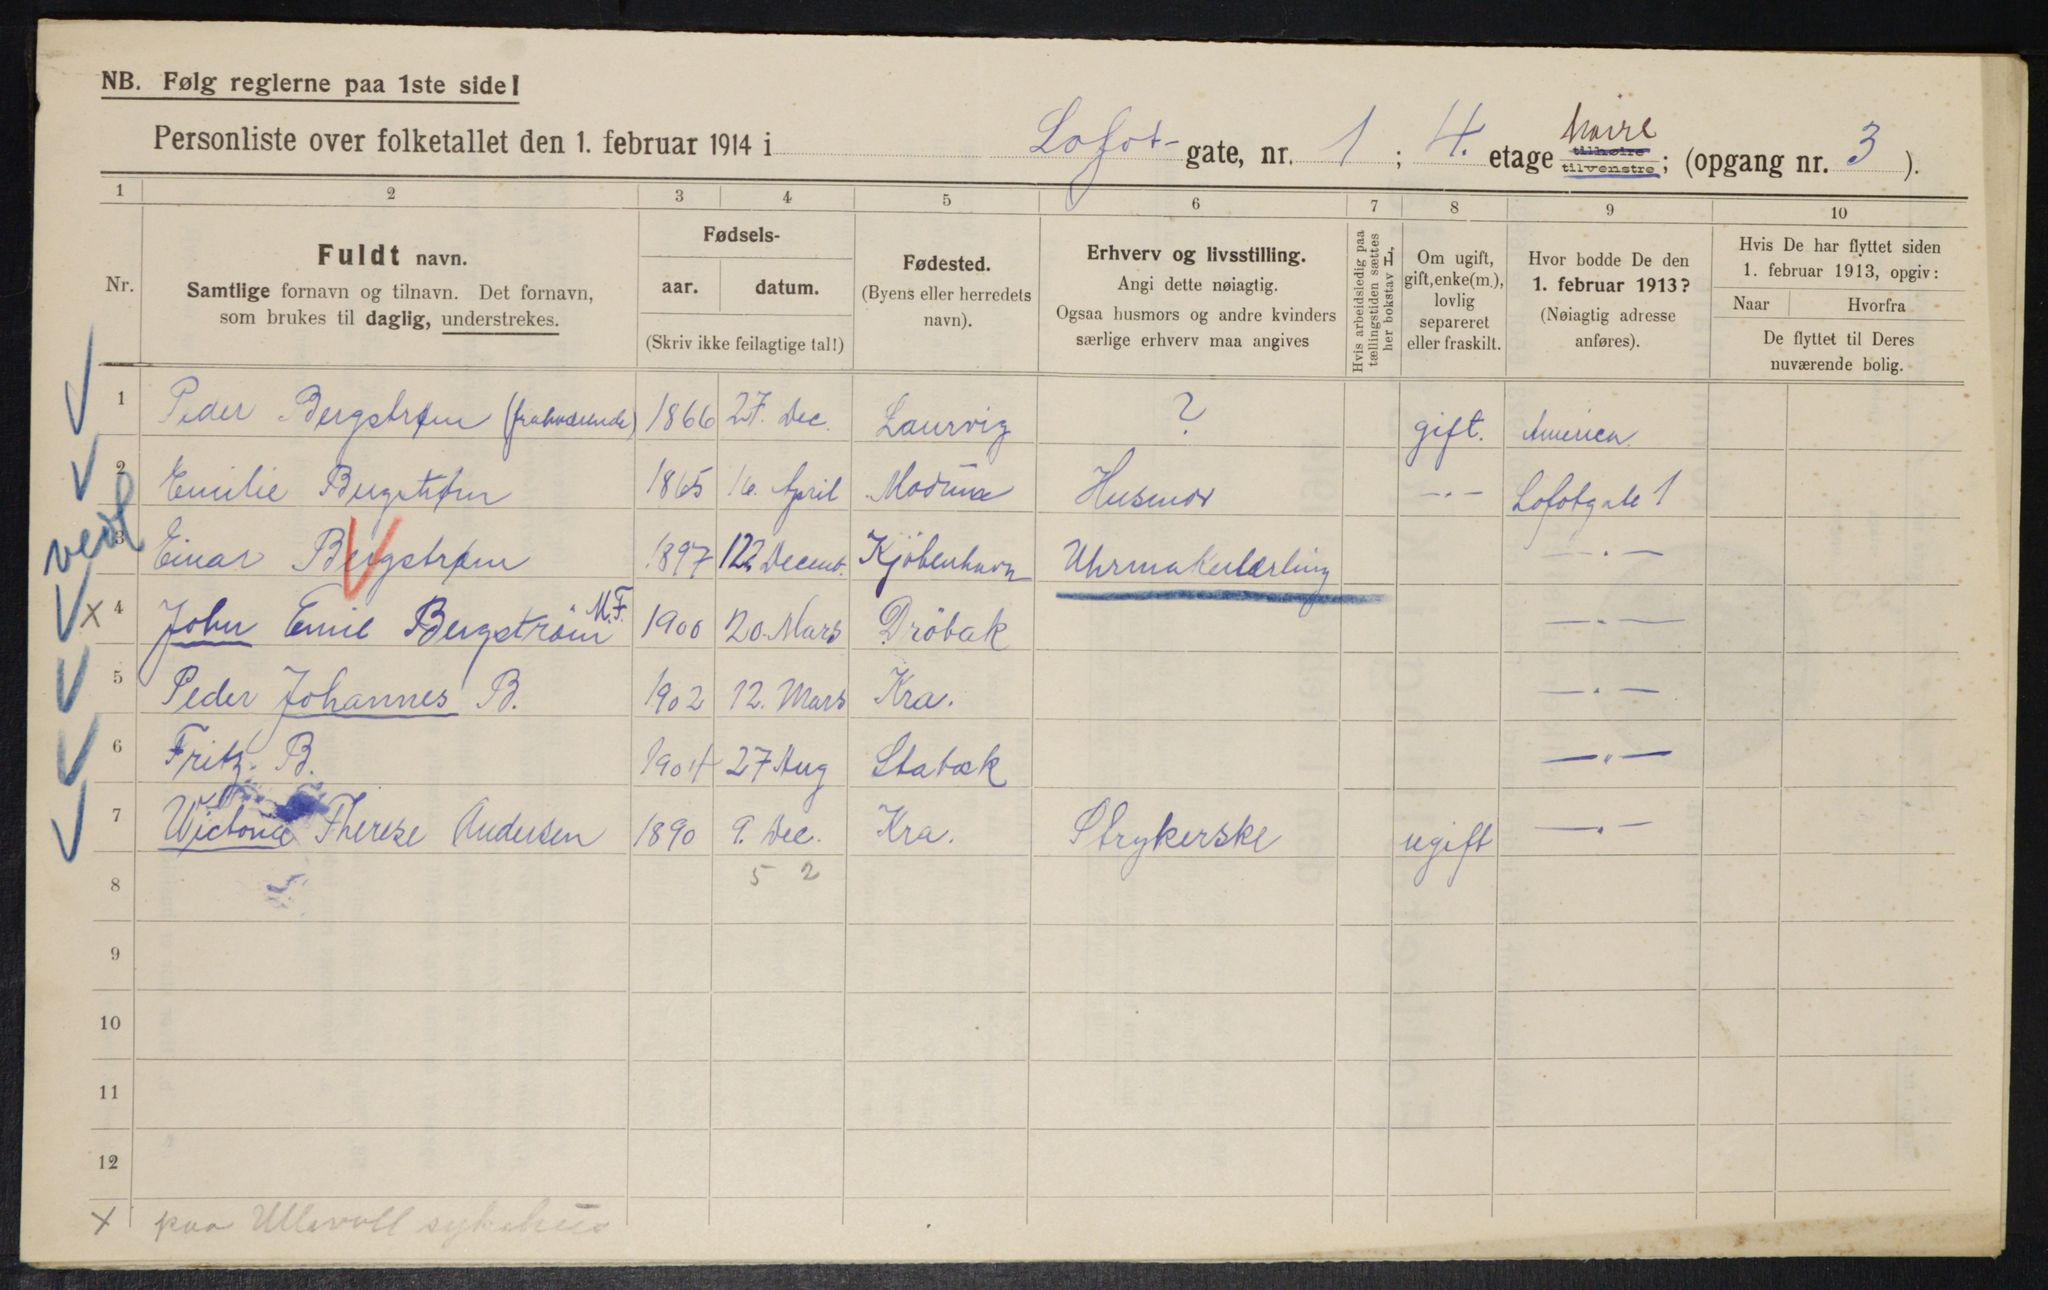 NB. Følg reglerne paa 1ste side!
Personliste over folketallet den 1. februar 1914 i Lofot- gate, nr. 1 ; 4. etage tilhøire tilvenstre; (opgang nr. 3 ).
1 2 3 4 5 6 7 8 9 10
Nr.
Fuldt navn.
Samtlige fornavn og tilnavn. Det fornavn,
som brukes til daglig, understrekes.
Fødsels-
aar. datum.
(Skriv ikke feilagtige tal!)
Fødested.
(Byens eller herredets
navn).
Erhverv og livsstilling.
Angi dette nøiagtig.
Ogsaa husmors og andre kvinders
særlige erhverv maa angives
Hvis arbeidsledig paa
tællingstiden sættes
her bokstav L.
Om ugift,
gift, enke(m.),
lovlig
separeret
eller fraskilt.
Hvor bodde De den
1. februar 1913?
(Nøiagtig adresse
anføres).
Hvis De har flyttet siden
1. februar 1913, opgiv:
Naar Hvorfra
De flyttet til Deres
nuværende bolig.
1 Peder Bergstrøm (fraværende) 1866 27. Dec. Laurvig ? gift. America
2 Emilie Bergstrøm 1865 16. April Modum Husmor —"— Lofotgate 1
3 Einar Bergstrøm 1897 Decemb. Kjøbenhavn Uhrmakerlærling —"—
x 4 John Emil Bergstrøm M.F. 1900 20. Mars Drøbak —"—
5 Peder Johannes B. 1902 12. Mars Kra. —"—
6 Fritz B. 1904 27 Aug Stabæk —"—
7 Wictoria Therese Andersen 1890 9. Dec. Kra. Strykerske ugift —"—
5 2
8
9
10
11
12
x paa Ullevoll sykehus